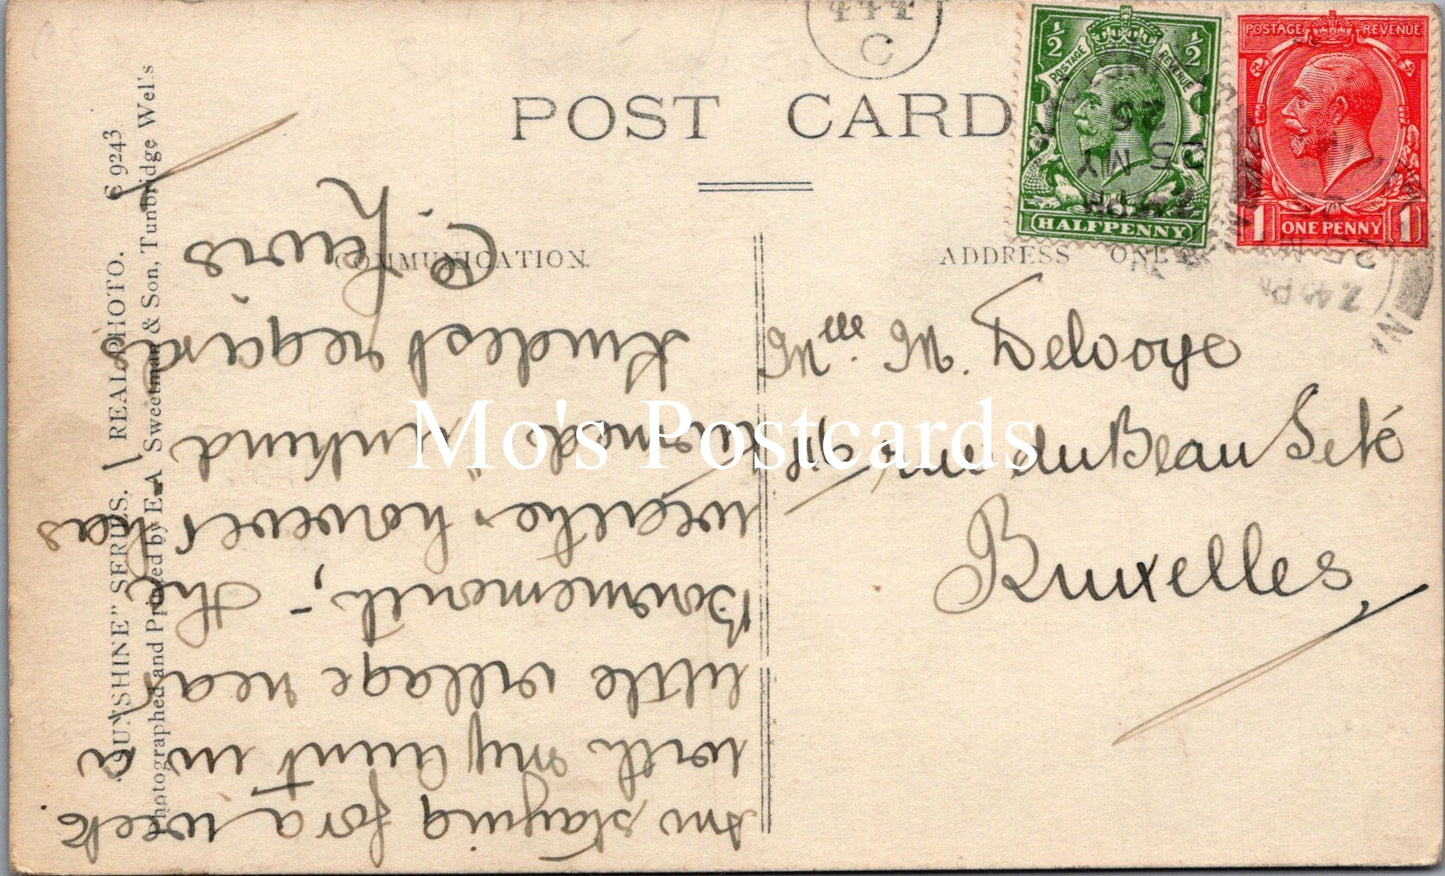 POST CARD
444
C
COMMUNICATION.
ADDRESS ONLY
½ ½
POSTAGE REVENUE
HALFPENNY
7.45 PM
25 MY
26
POSTAGE REVENUE
1 ONE PENNY 1
"SUNSHINE" SERIES. REAL PHOTO. C 9243
Photographed and Printed by E. A. Sweetman & Son, Tunbridge Wel's
Mlle. M. Delooye
rue du Beau Seté
Bruxelles
Am staying for a week
with my Aunt in a
little village near
Bournemouth, - the
weather however has
turned unkind
Kindest regards
Lewis
Mo's Postcards